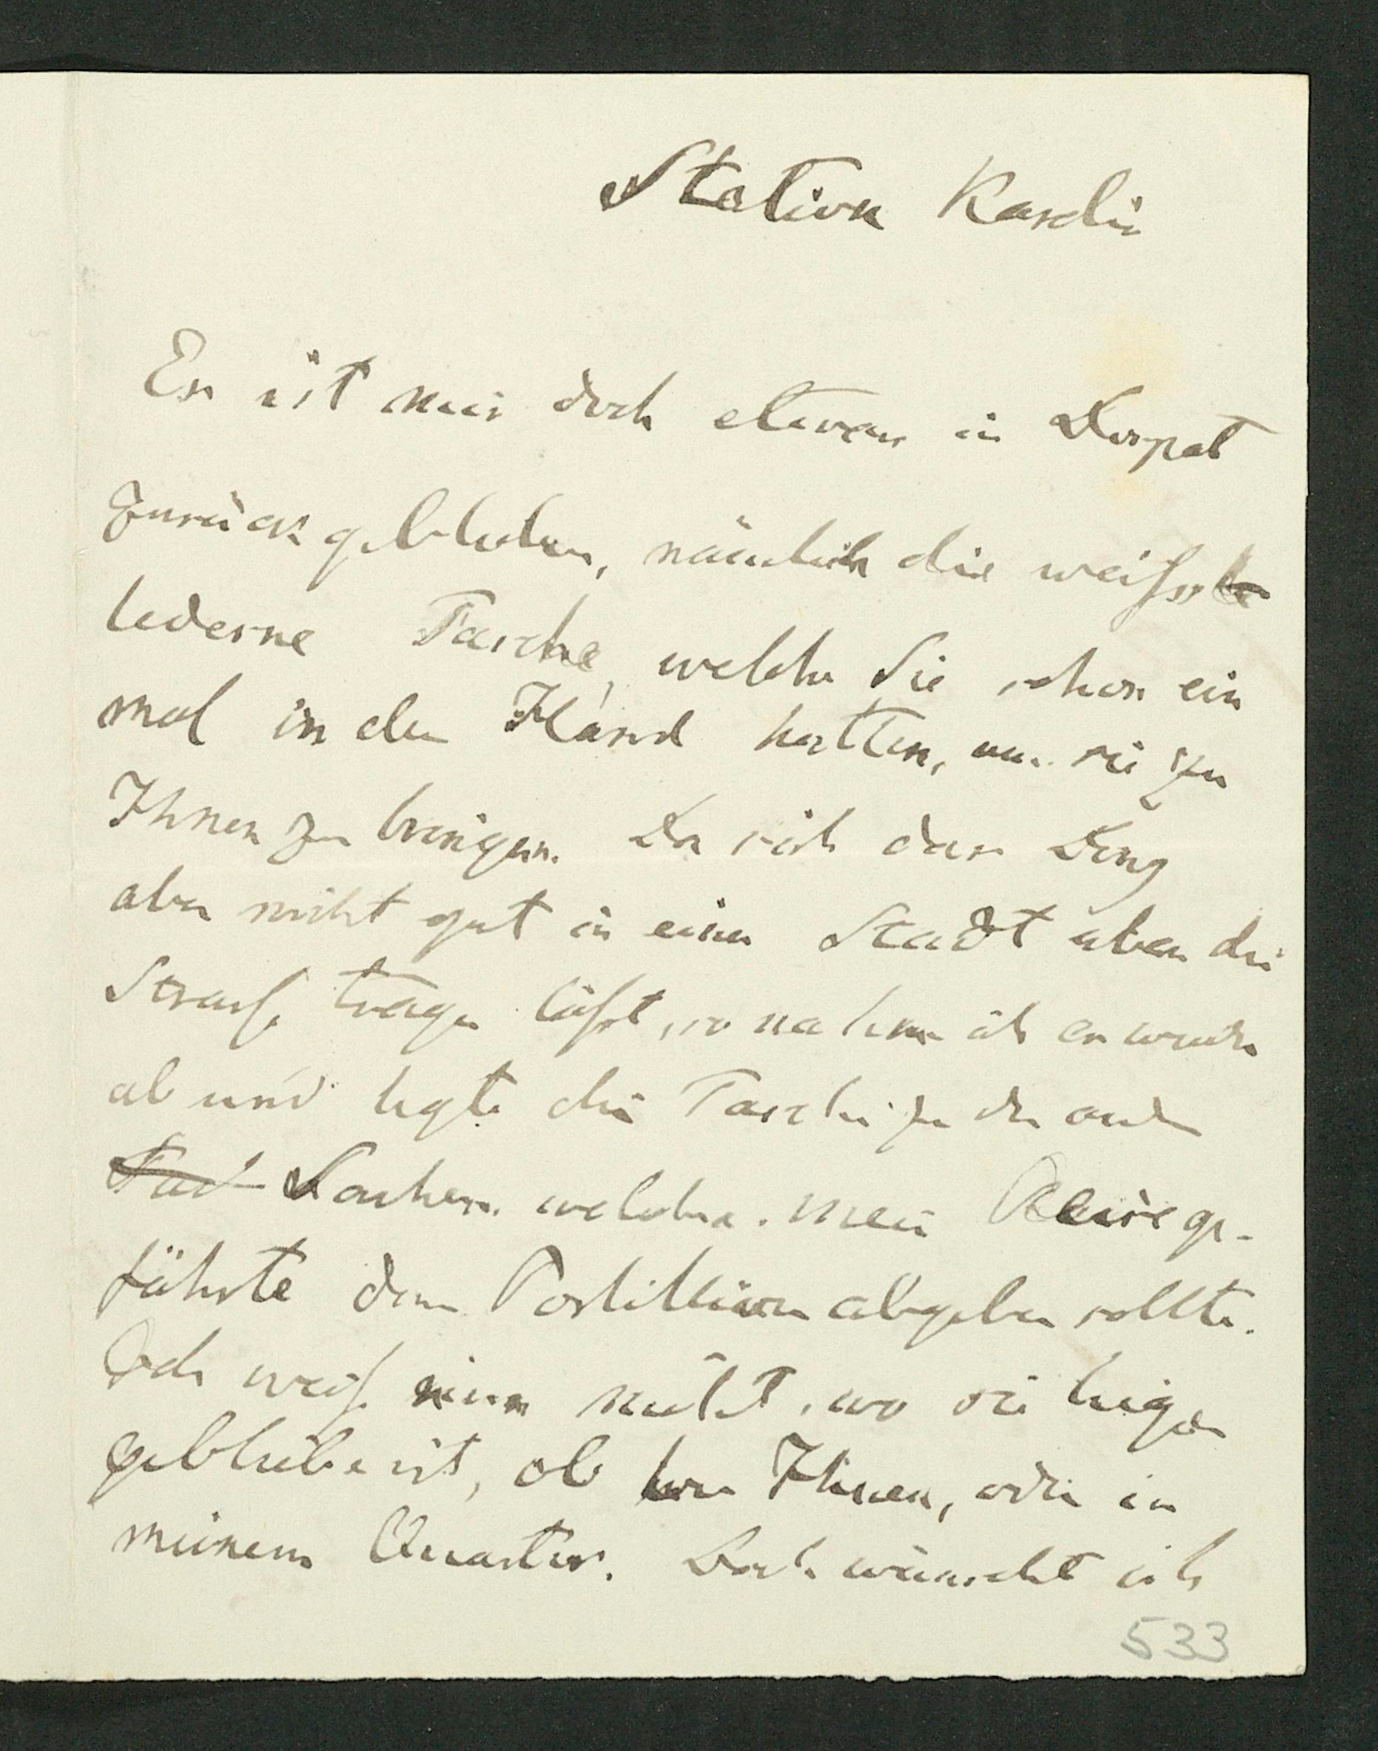 Station Kardis
Es ist mir doch etwas in Dorpat
zurückgeblieben, nämlich die weiss
lederne Tasche, welche Sie schon ein
mal in der Hand hatten, um sie zu
Ihnen zu bringen. Da sich das Ding
aber nicht gut in einer Stadt über die
Strasse tragen lässt, so nahm ich es wieder
ab und legte die Tasche zu den andern
Sachen, welche mein Reisege-
fährte dem Postillion abgeben sollte.
Ich weiss nun nicht, wo sie liegen
geblieben ist, ob bei Ihnen, oder in
meinem Quartier. Doch wünscht ich
533